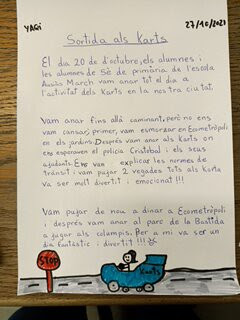 YAGI
27/10/2021
Sortida als Karts
El dia 20 de d'octubre, els alumnes i
les alumnes de 5è de primària de l'escola
Ausiàs March vam anar tot el dia a
l'activitat dels Karts en la nostra ciutat.
Vam anar fins allà caminant, però no ens
vam cansar, primer, vam esmorzar en Ecometròpoli
en els jardins. Després vam anar als karts on
ens esperaven el policia Cristobal i els seus
ajudants. Ens van explicar les normes de
trànsit i vam pujar 2 vegades tots als karts
va ser molt divertit i emocionat!!!
Vam pujar de nou a dinar a Ecometròpoli
i després vam anar al parc de la Bastida
a jugar als columpis. Per a mi va ser un
dia fantàstic i divertit!!!
STOP
Karts